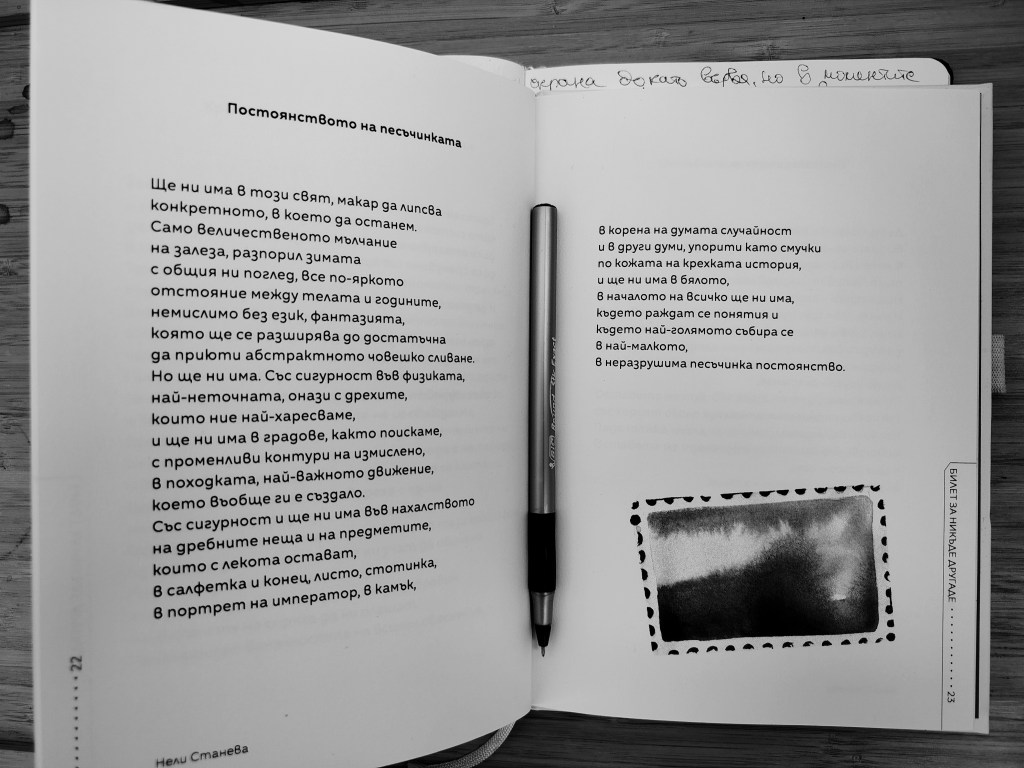 Постоянството на песъчинката
Ще ни има в този свят, макар да липсва
конкретното, в което да останем.
Само величественото мълчание
на залеза, разпорил зимата
с общия ни поглед, все по-яркото
отстояние между телата и годините,
немислимо без език, фантазията,
която ще се разширява до достатъчна
да приюти абстрактното човешко сливане.
Но ще ни има. Със сигурност във физиката,
най-неточната, онази с дрехите,
които ние най-харесваме,
и ще ни има в градове, както поискаме,
с променливи контури на измислено,
в походката, най-важното движение,
което въобще ги е създало.
Със сигурност и ще ни има във нахалството
на дребните неща и на предметите,
които с лекота остават,
в салфетка и конец, листо, стотинка,
в портрет на император, в камък,
22
Нели Станева
докато вървя, но в моментите
в корена на думата случайност
и в други думи, упорити като смучки
по кожата на крехката история,
и ще ни има в бялото,
в началото на всичко ще ни има,
където раждат се понятия и
където най-голямото събира се
в най-малкото,
в неразрушима песъчинка постоянство.
БИЛЕТ ЗА НИКЪДЕ ДРУГАДЕ
23